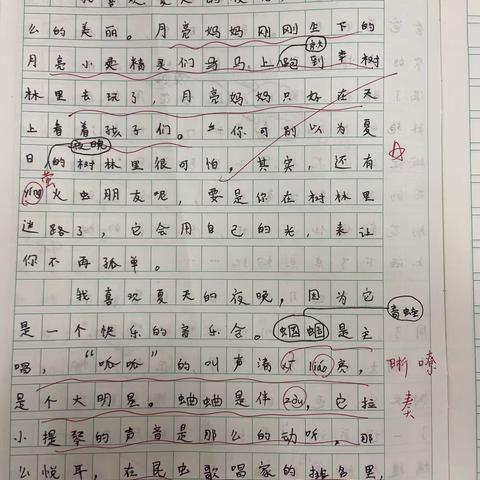 我喜欢夏天的夜晚
么的美丽。月亮妈妈刚刚坐下的
月亮小是精灵们马马上跑到幸树
林里去玩了，月亮妈妈只好在天
上看着孩子们。乡你可别以为夏
夜晚
日的树林里很可怕，其实，还有
萤
yíng火虫朋友呢，要是你在树林里
迷路了，它会用自己的光，来让
你不再孤单。
我喜欢夏天的夜晚，因为它
青蛙
是一个快乐的音乐会。蝈蝈是主
唱，“呱呱”的叫声清xī liáo亮，
晰 嘹
是个大明星。蛐蛐是伴zòu，它拉
奏
小提琴的声音是那么的动听，那
么悦耳，在昆虫歌唱家的排名里，